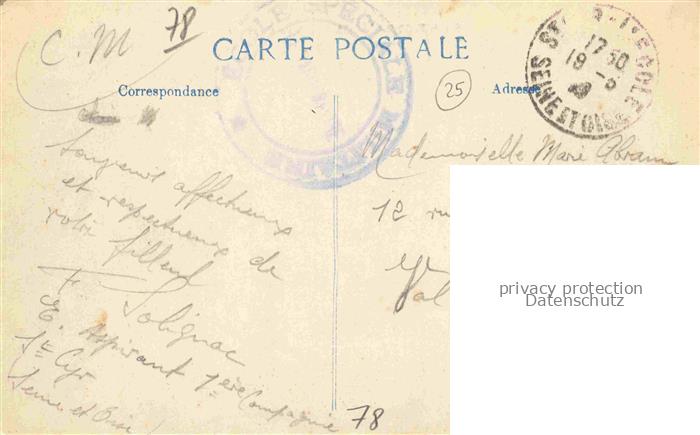 C. M 78
CARTE POSTALE
Correspondance
Adresse
25
ST CYR L'ECOLE
17 30
19 - 5
SEINE ET OISE
toujours affectueux
et respectueux de
votre filleul
F Solignac
E. Aspirant 1ère Compagnie
St Cyr
Seine et Oise
Mademoiselle Marie Abram
12 ru
Val
78
privacy protection
Datenschutz